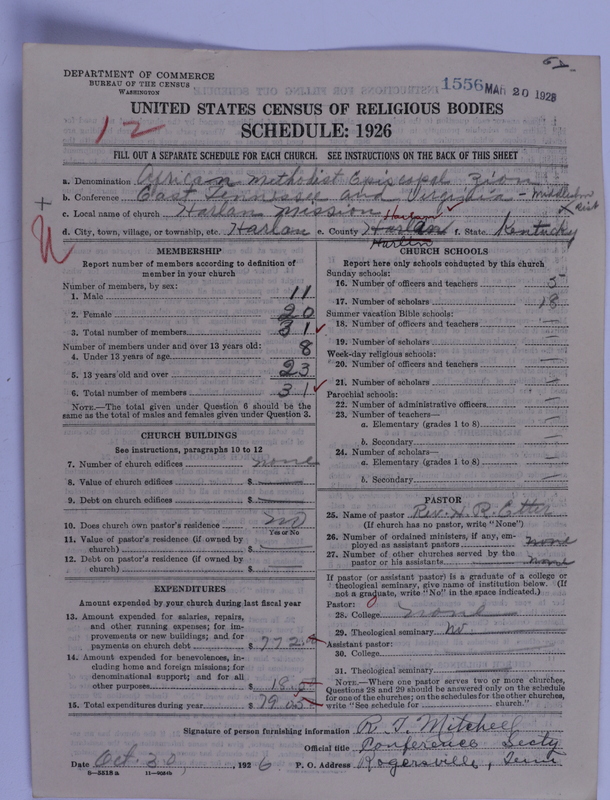 DEPARTMENT OF COMMERCE
BUREAU OF THE CENSUS
WASHINGTON
1556 MAR 20 1928
UNITED STATES CENSUS OF RELIGIOUS BODIES
SCHEDULE: 1926
12
FILL OUT A SEPARATE SCHEDULE FOR EACH CHURCH. SEE INSTRUCTIONS ON THE BACK OF THIS SHEET
a. Denomination African Methodist Episcopal Zion
b. Conference East Tennessee and Virginia - Middlesboro Dist
c. Local name of church Harlan Mission
d. City, town, village, or township, etc. Harlan e. County Harlan f. State Kentucky
Harlan
MEMBERSHIP
Report number of members according to definition of
member in your church
Number of members, by sex:
1. Male 11
2. Female 20
3. Total number of members 31
Number of members under and over 13 years old:
4. Under 13 years of age 8
5. 13 years old and over 23
6. Total number of members 31
NOTE.—The total given under Question 6 should be the
same as the total of males and females given under Question 3.
CHURCH BUILDINGS
See instructions, paragraphs 10 to 12
7. Number of church edifices none
8. Value of church edifices $
9. Debt on church edifices $
10. Does church own pastor's residence no
Yes or No
11. Value of pastor's residence (if owned by
church) $
12. Debt on pastor's residence (if owned by
church) $
EXPENDITURES
Amount expended by your church during last fiscal year
13. Amount expended for salaries, repairs,
and other running expenses; for im-
provements or new buildings; and for
payments on church debt $
14. Amount expended for benevolences, in-
cluding home and foreign missions; for
denominational support; and for all
other purposes $
15. Total expenditures during year $
CHURCH SCHOOLS
Report here only schools conducted by this church
Sunday schools:
16. Number of officers and teachers 5
17. Number of scholars 18
Summer vacation Bible schools:
18. Number of officers and teachers —
19. Number of scholars —
Week-day religious schools:
20. Number of officers and teachers —
21. Number of scholars —
Parochial schools:
22. Number of administrative officers —
23. Number of teachers—
a. Elementary (grades 1 to 8) —
b. Secondary —
24. Number of scholars—
a. Elementary (grades 1 to 8) —
b. Secondary —
PASTOR
25. Name of pastor Rev. H. R. Etter
(If church has no pastor, write "None")
26. Number of ordained ministers, if any, em-
ployed as assistant pastors none
27. Number of other churches served by the
pastor or his assistants none
If pastor (or assistant pastor) is a graduate of a college or
theological seminary, give name of institution below. (If
not a graduate, write "No" in the space indicated.)
Pastor:
28. College none
29. Theological seminary No
Assistant pastor:
30. College
31. Theological seminary
NOTE.—Where one pastor serves two or more churches,
Questions 28 and 29 should be answered only on the schedule
for one of the churches; on the schedules for the other churches,
write "See schedule for church."
Signature of person furnishing information R. T. Mitchell
Official title Conference Secty
Date Oct. 30, 1926 P. O. Address Rogersville, Tenn
8—5518a